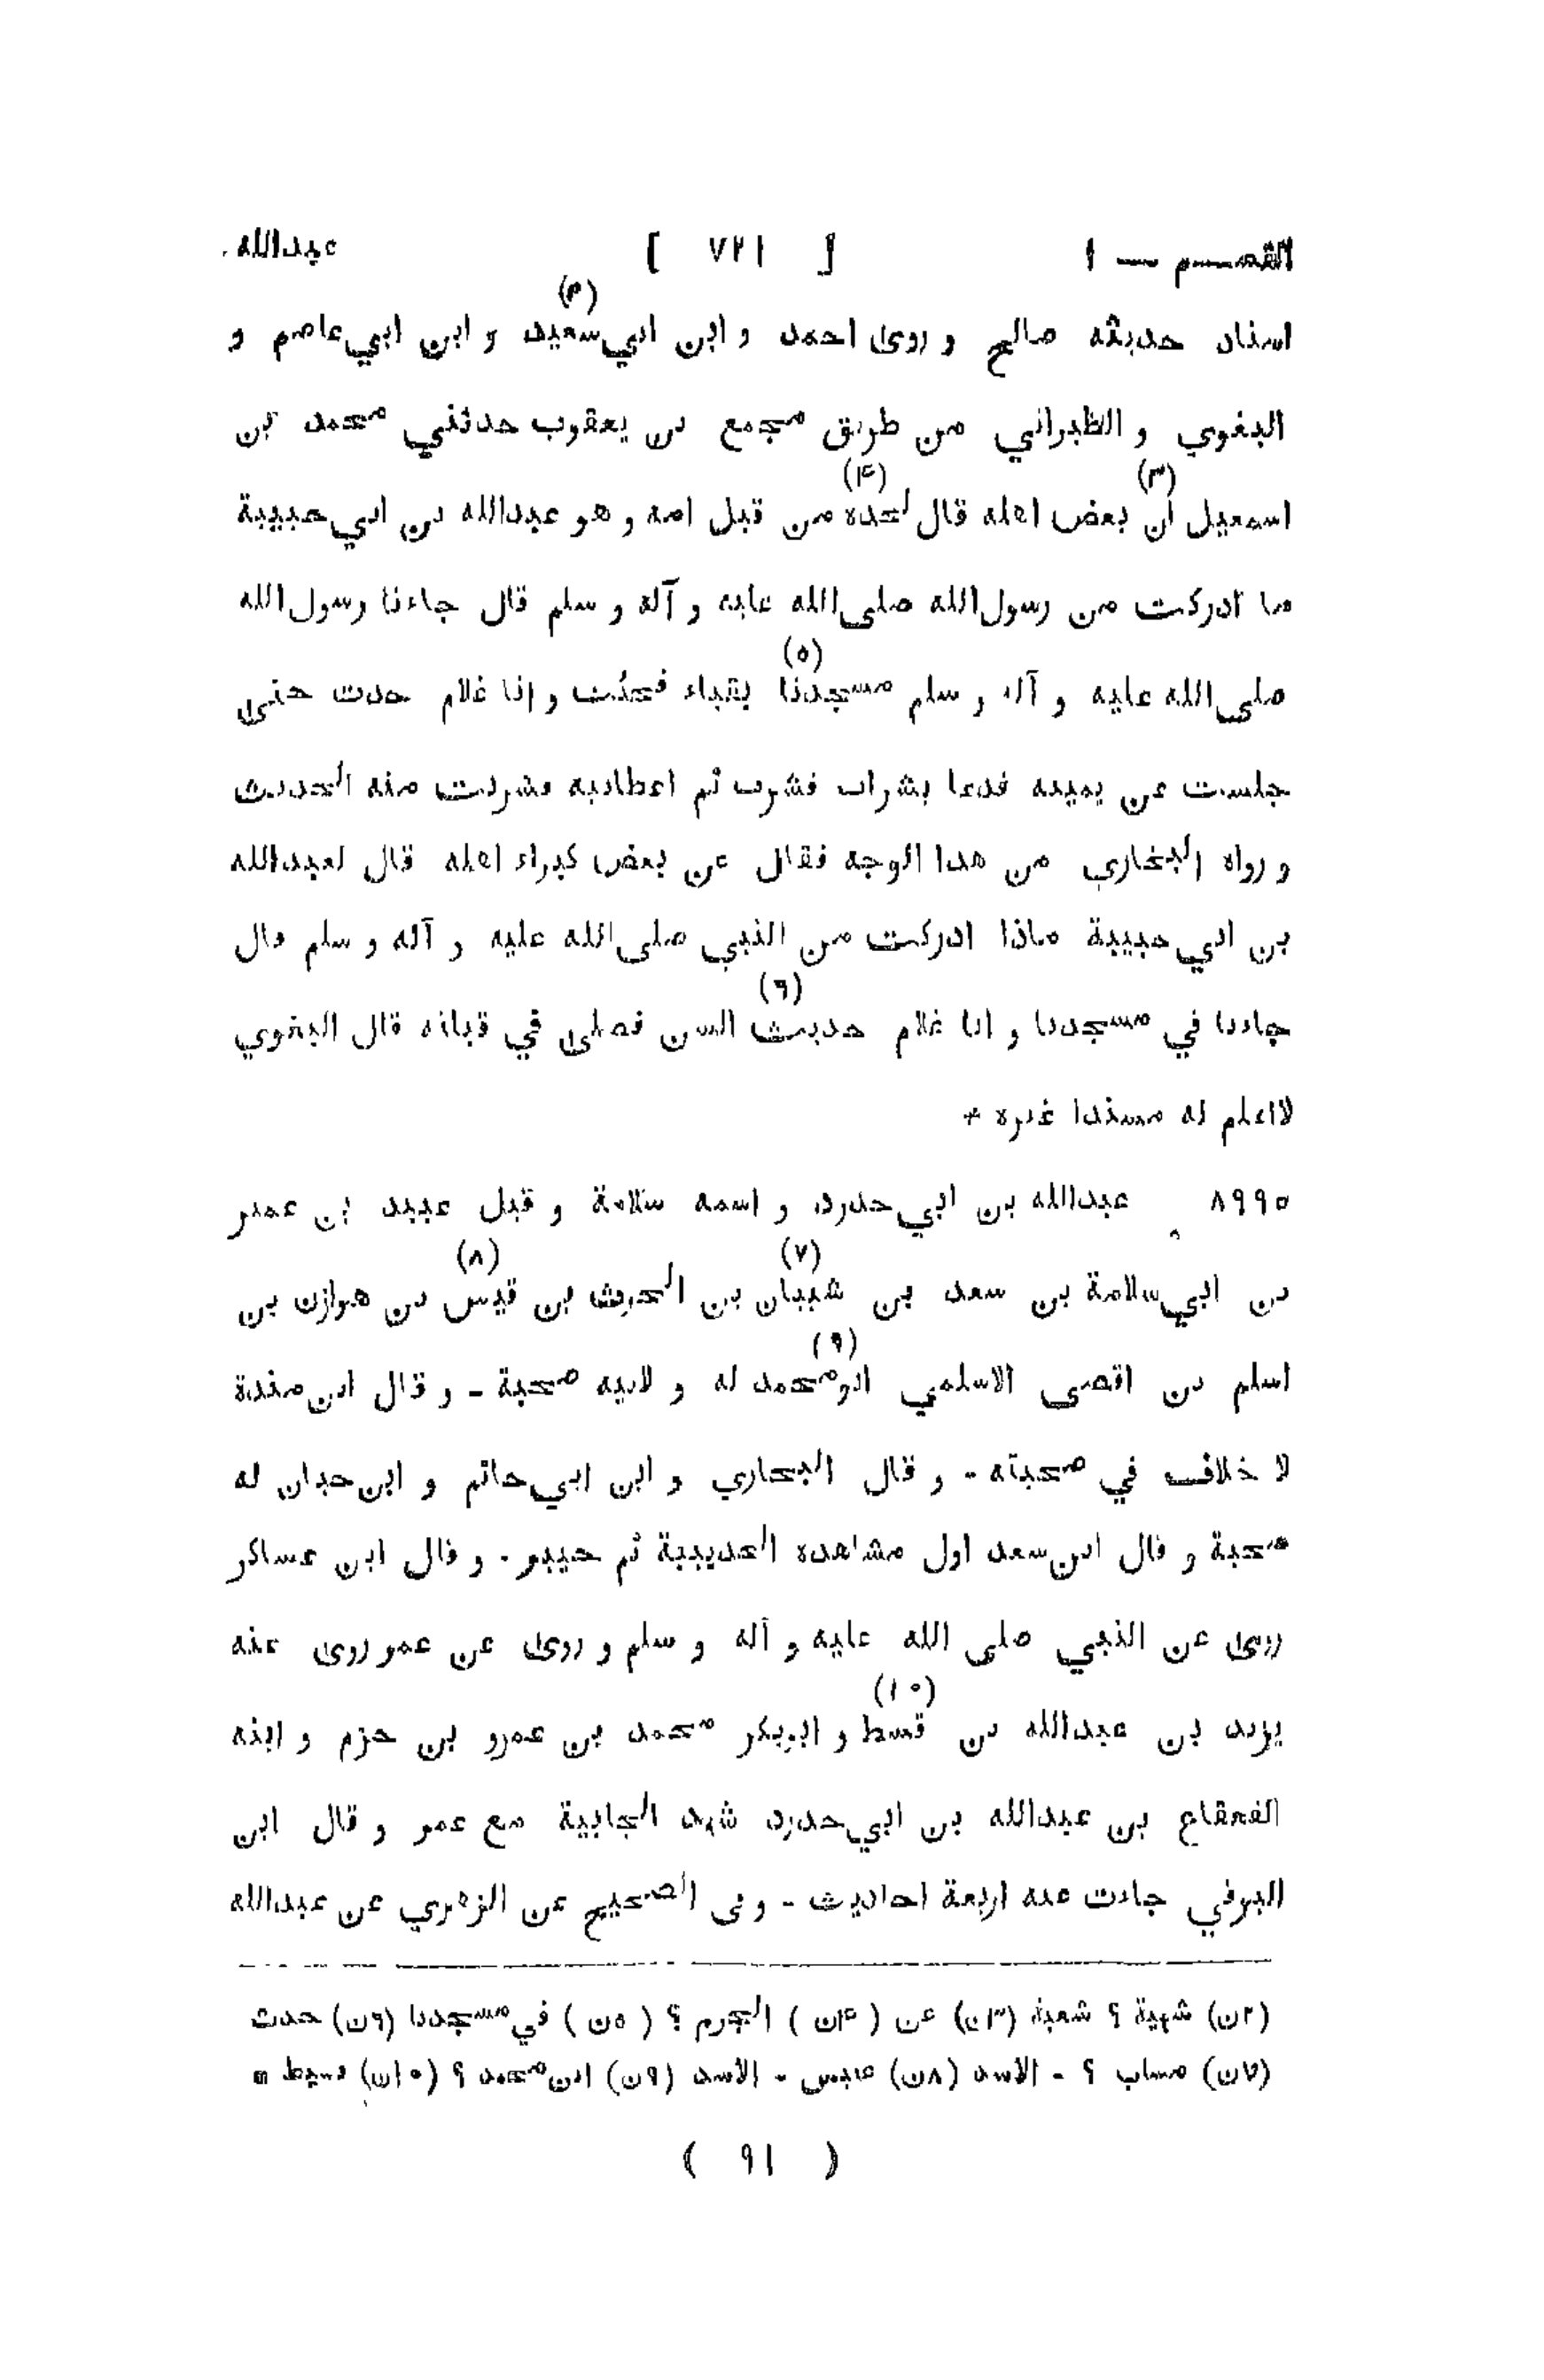 القسم — ١ [ ٧٢١ ] عبدالله
اسناد حديثه صالح و روى احمد و ابن ابي سعيد (٢) و ابن ابي عاصم و
البغوي و الطبراني من طريق مجمع بن يعقوب حدثني محمد بن
اسمعيل ان (٣) بعض اهله قال لجده (۴) من قبل امه و هو عبدالله بن ابي حبيبة
ما ادركت من رسول الله صلى الله عليه و آله و سلم قال جاءنا رسول الله
صلى الله عليه و آله و سلم مسجدنا (٥) بقباء فجئت و انا غلام حدث حتى
جلست عن يمينه فدعا بشراب فشرب ثم اعطانيه فشربت منه الحديث
و رواه البخاري من هذا الوجه فقال عن بعض كبراء اهله قال لعبدالله
بن ابي حبيبة ماذا ادركت من النبي صلى الله عليه و آله و سلم قال
جاءنا في مسجدنا و انا غلام حديث (٦) السن فصلى في قبائه قال البغوي
لا اعلم له مسندا غيره *
٨٩٩٥ عبدالله بن ابي حدرد و اسمه سلامة و قيل عبيد بن عمير
بن ابي سلامة بن سعد بن شيبان (٧) بن الحرث بن قيس (٨) بن هوازن بن
اسلم بن اقصى الاسلمي ابو محمد (٩) له و لابيه صحبة - و قال ابن مندة
لا خلاف في صحبته - و قال البخاري و ابن ابي حاتم و ابن حبان له
صحبة و قال ابن سعد اول مشاهده الحديبية ثم خيبر - و قال ابن عساكر
روى عن النبي صلى الله عليه و آله و سلم و روى عن عمر روى عنه
يزيد بن عبدالله بن قسط (١٠) و ابوبكر محمد بن عمرو بن حزم و ابنه
القعقاع بن عبدالله بن ابي حدرد شهد الجابية مع عمر و قال ابن
البرقي جاءت عنه اربعة احاديث - و في الصحيح عن الزهري عن عبدالله
(٢ن) شهبة ؟ شعبة (٣ن) عن (۴ن) الجرم ؟ (٥ن) في مسجدنا (٦ن) حدث
(٧ن) مساب ؟ - الاسد (٨ن) عبس - الاسد (٩ن) ابن محمد ؟ (١٠ن) قسيط
( ٩١ )